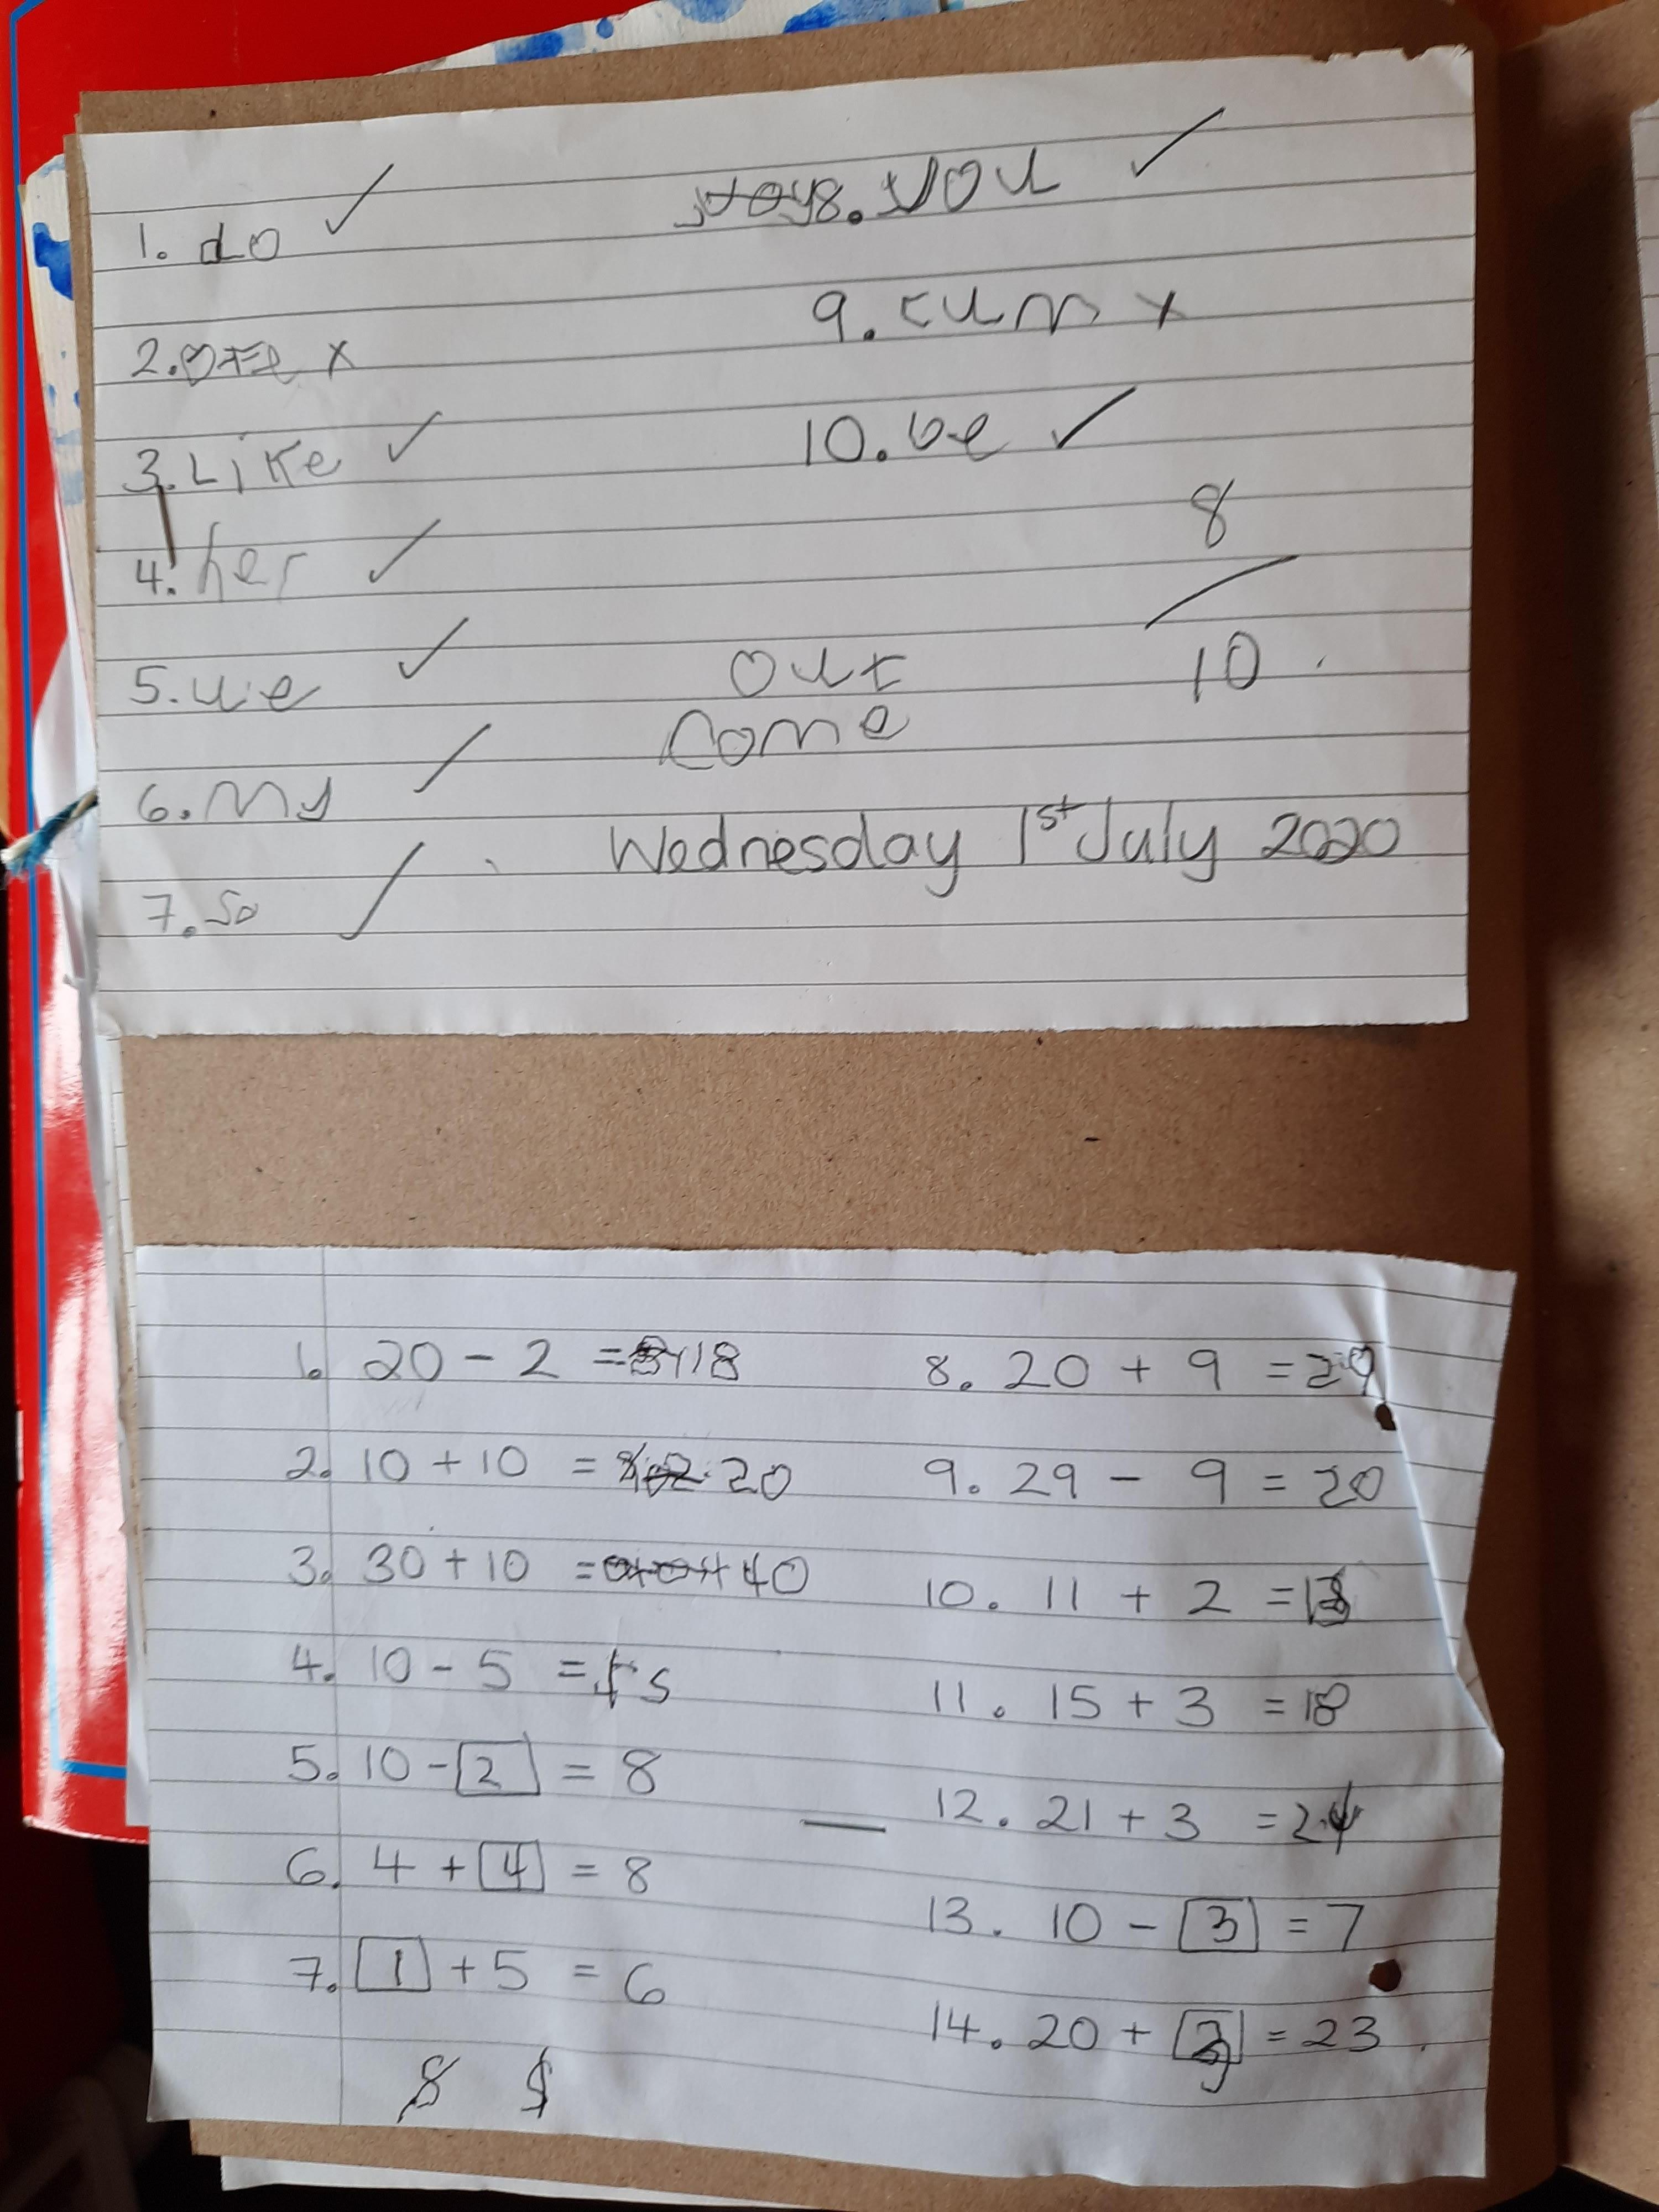 1. do ✓
2. ote x
3. Like ✓
4. her ✓
5. we ✓
6. my ✓
7. so ✓
8. you ✓
9. cum x
10. be ✓
8
10
out
come
Wednesday 1st July 2020
1. 20 - 2 = 18
2. 10 + 10 = 20
3. 30 + 10 = 40
4. 10 - 5 = 5
5. 10 - 2 = 8
6. 4 + 4 = 8
7. 1 + 5 = 6
8. 20 + 9 = 29
9. 29 - 9 = 20
10. 11 + 2 = 13
11. 15 + 3 = 18
12. 21 + 3 = 24
13. 10 - 3 = 7
14. 20 + 3 = 23